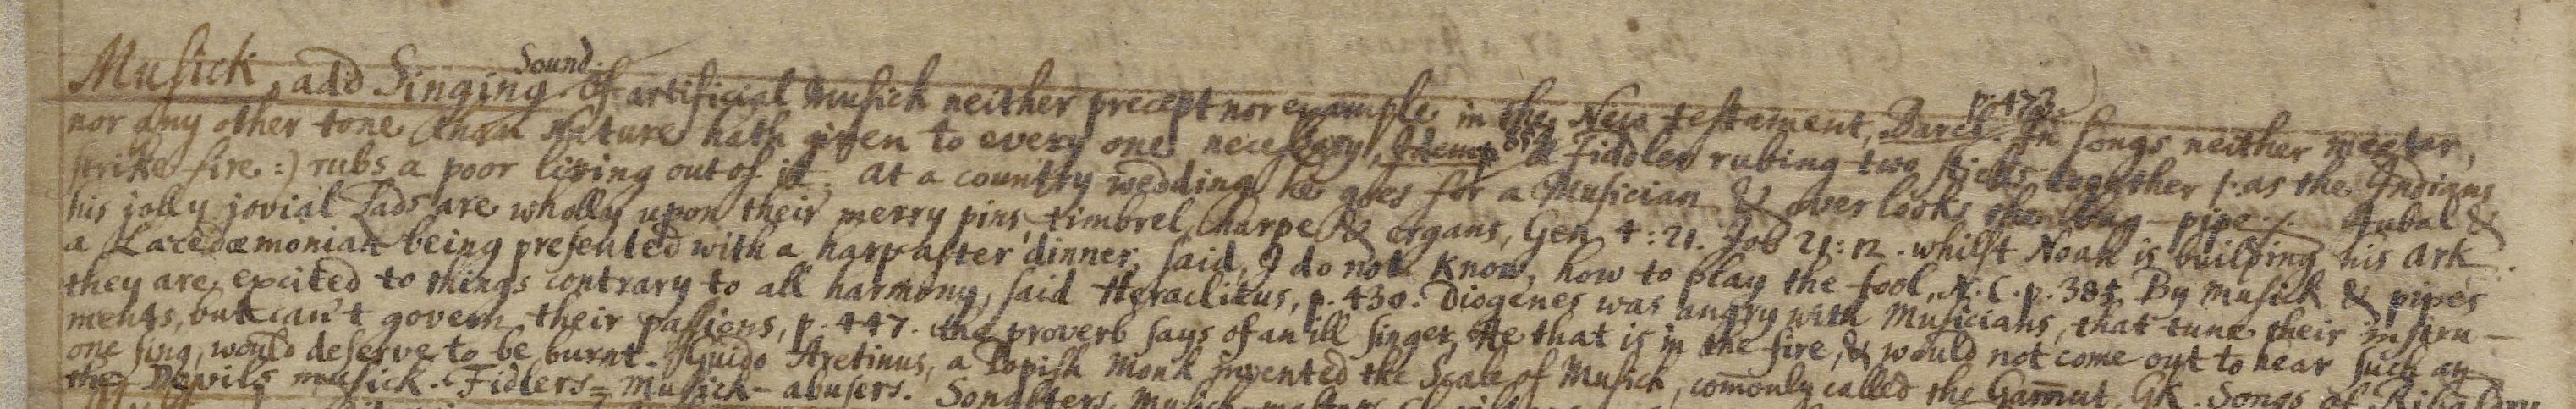 Musick, add Singing Sound. Of artificial Musick neither precept nor example in the New testament, Barcl. p. 473. In songs neither meeter,
nor any other tone than Nature hath given to every one necessary, Idem p 852 A Fiddler rubing two sticks together /: as the Indians
strike fire :) rubs a poor living out of it. At a country wedding he goes for a Musician & over looks the bag-pipe. Jubal &
his jolly jovial Lads are wholly upon their merry pins, timbrel, harpe & organs, Gen. 4: 21. Job 21: 12. whilst Noah is building his ark.
a Lacedæmonian being presented with a harp after dinner, said, I do not know, how to play the fool, N. C. p. 385. By musick & pipes
they are excited to things contrary to all harmony, said Heraclitus, p. 430. Diogenes was angry with Musicians, that tune their instru-
ments, but can't govern their passions, p. 447. the proverb says of an ill singer, He that is in the fire, & would not come out to hear such an
one sing, would deserve to be burnt. Guido Aretinus, a Popish Monk invented the Scale of Musick, comonly called the Gamut, GK. Songs of
the Devils musick. Fidlers = Musick-abusers. Songsters, Musick-masters